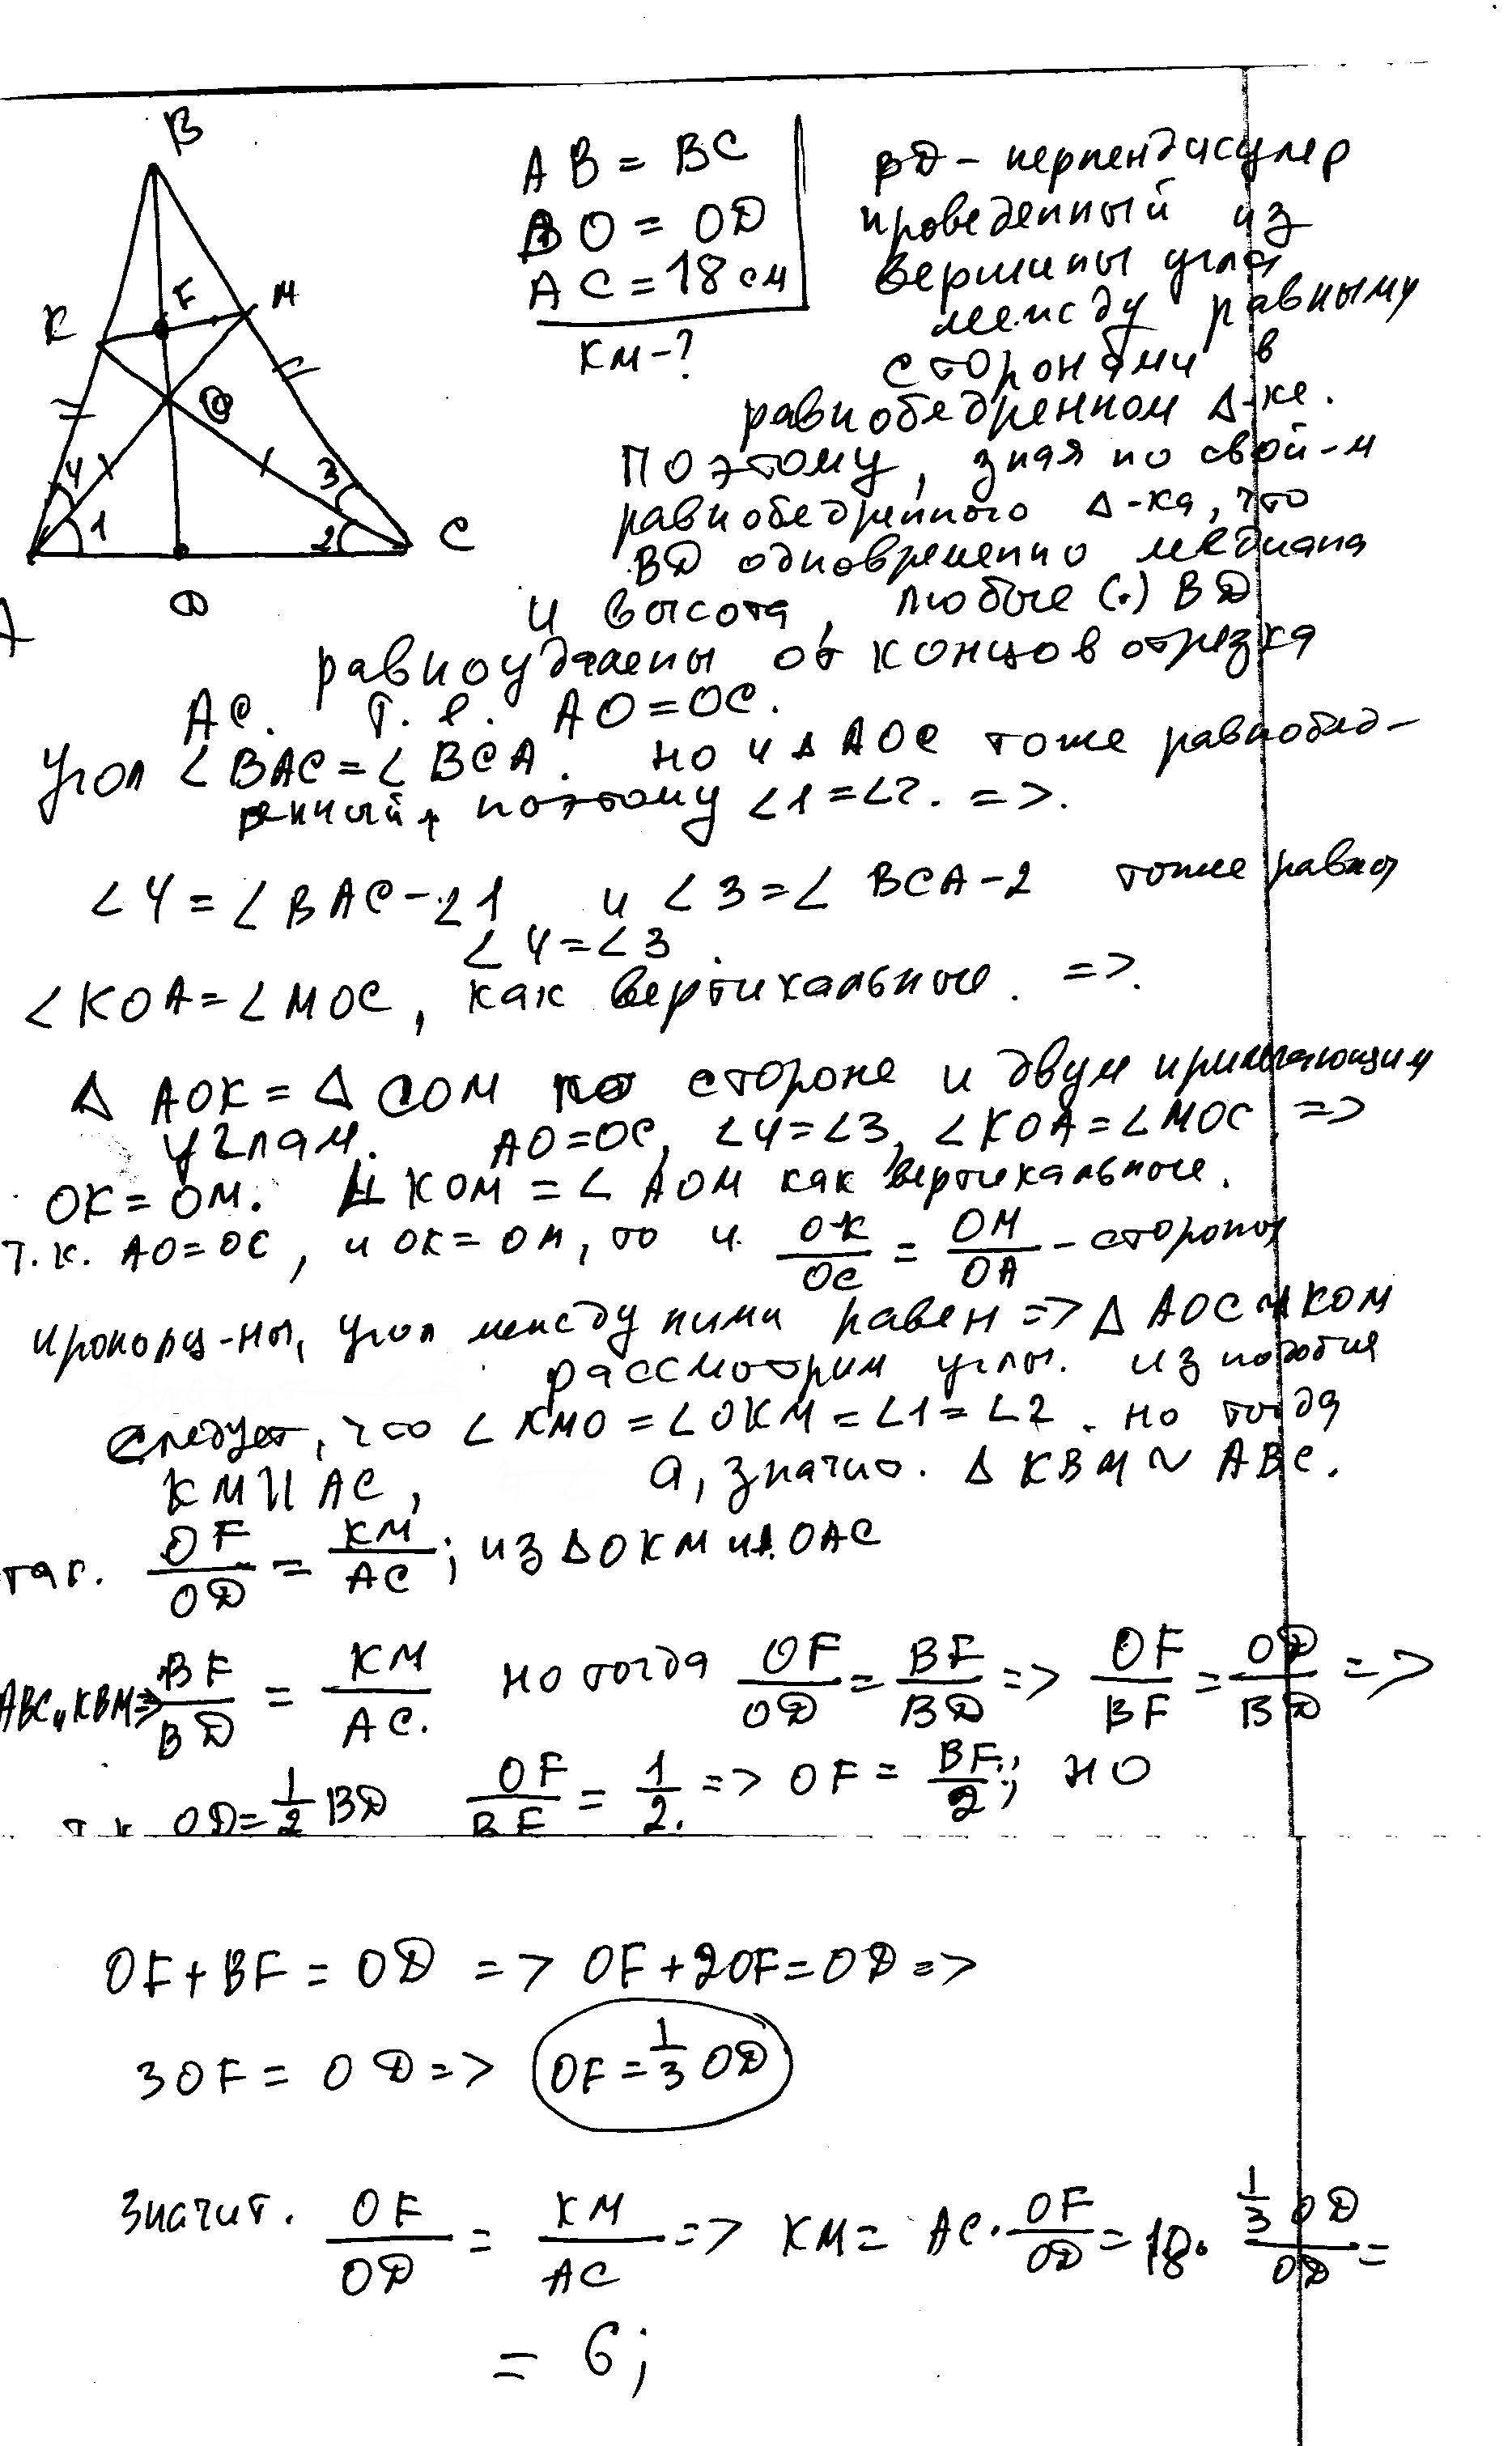 B
K
F
M
O
4
3
1
2
C
A
D
AB = BC
BO = OD
AC = 18 см
KM - ?
BD - перпендикуляр
проведенный из
вершины угла
между равныму
сторонами в
равнобедренном Δ-ке.
Поэтому, зная по свой-м
равнобедренного Δ-ка, что
BD одновременно медиана
и высота, любые (.) BD
равноудалены от концов отрезка
AC. т.е. AO = OC.
Угол ∠BAC = ∠BCA. но и Δ AOC тоже равнобед-
ренный, поэтому ∠1 = ∠2. =>.
∠4 = ∠BAC - ∠1 и ∠3 = ∠BCA - 2 тоже равны
∠4 = ∠3.
∠KOA = ∠MOC, как вертикальные. =>.
Δ AOK = Δ COM по стороне и двум прилегающим
углам. AO = OC, ∠4 = ∠3, ∠KOA = ∠MOC =>
OK = OM. ∠KOM = ∠AOM как вертикальные.
т.к. AO = OC, и OK = OM, то и. OK/OC = OM/OA - стороны
пропорц-ны, угол между ними равен => Δ AOC ~ KOM
рассмотрим углы. из подобия
следует, что ∠KMO = ∠OKM = ∠1 = ∠2. но тогда
KM || AC, а, значит. Δ KBM ~ ABC.
OF/OD = KM/AC; из Δ OKM и Δ OAC
ABC и KBM => BF/BD = KM/AC. но тогда OF/OD = BF/BD => OF/BF = OD/BD =>
т.к. OD = 1/2 BD OF/BF = 1/2. => OF = BF/2; но
OF + BF = OD => OF + 2OF = OD =>
3OF = OD => OF = 1/3 OD
Значит. OF/OD = KM/AC => KM = AC · OF/OD = 18 · 1/3 OD/OD =
= 6;